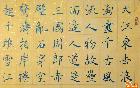 大江東去浪
淘盡千古風
流人物故壘
西邊人道是
三國周郎赤
壁亂石穿空
驚濤拍岸捲
起千堆雪江